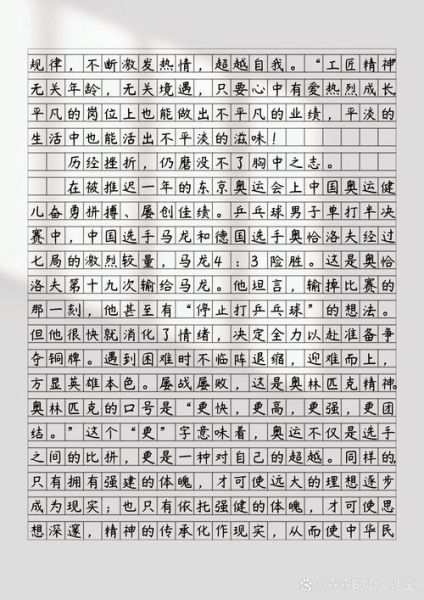 规律，不断激发热情，超越自我。“工匠精神
无关年龄，无关境遇，只要心中有爱热烈成长，
平凡的岗位上也能做出不平凡的业绩，平淡的
生活中也能活出不平淡的滋味！
历经挫折，仍磨没不了胸中之志。
在被推迟一年的东京奥运会上中国奥运健
儿奋勇拼搏、屡创佳绩。乒乓球男子单打半决
赛中，中国选手马龙和德国选手奥恰洛夫经过
七局的激烈较量，马龙4：3险胜。这是奥恰
洛夫第十九次输给马龙。他坦言，输掉比赛的
那一刻，他甚至有“停止打乒乓球”的想法。
但他很快就消化了情绪，决定全力以赴准备争
夺铜牌。遇到困难时不临阵退缩，迎难而上，
方显英雄本色。屡战屡败，这是奥林匹克精神。
奥林匹克的口号是“更快，更高，更强，更团
结。”这个“更”字意味着，奥运不仅是选手
之间的比拼，更是一种对自己的超越。同样的，
只有拥有强建的体魄，才可使远大的理想逐步
成为现实；也只有依托强健的体魄，才可使思
想深邃，精神的传承化作现实，从而使中华民